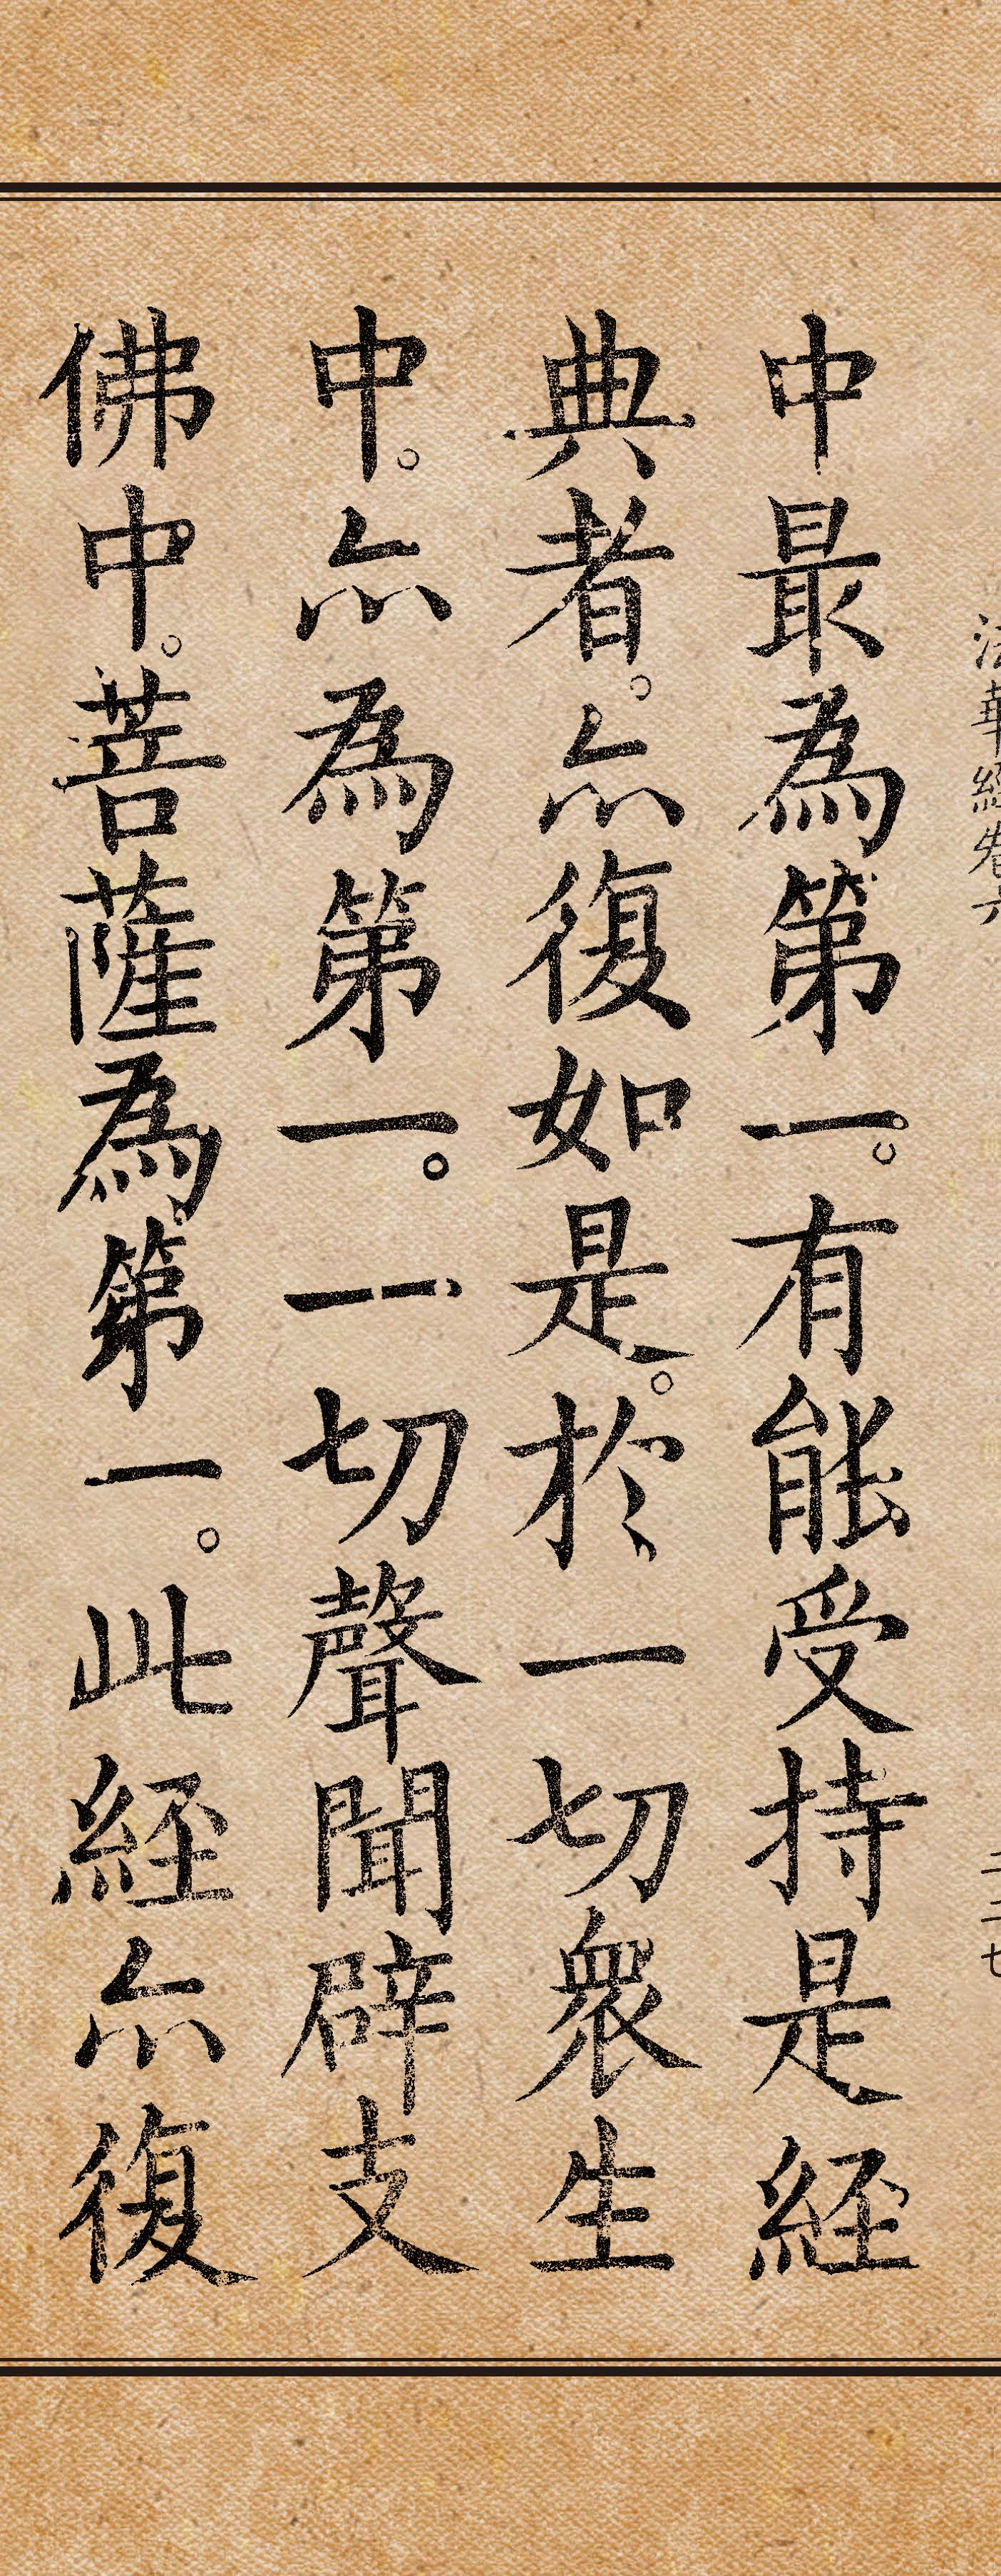 法華經卷六 二二七
中最為第一。有能受持是経
典者。亦復如是。於一切衆生
中。亦為第一。一切聲聞辟支
佛中。菩薩為第一。此経亦復